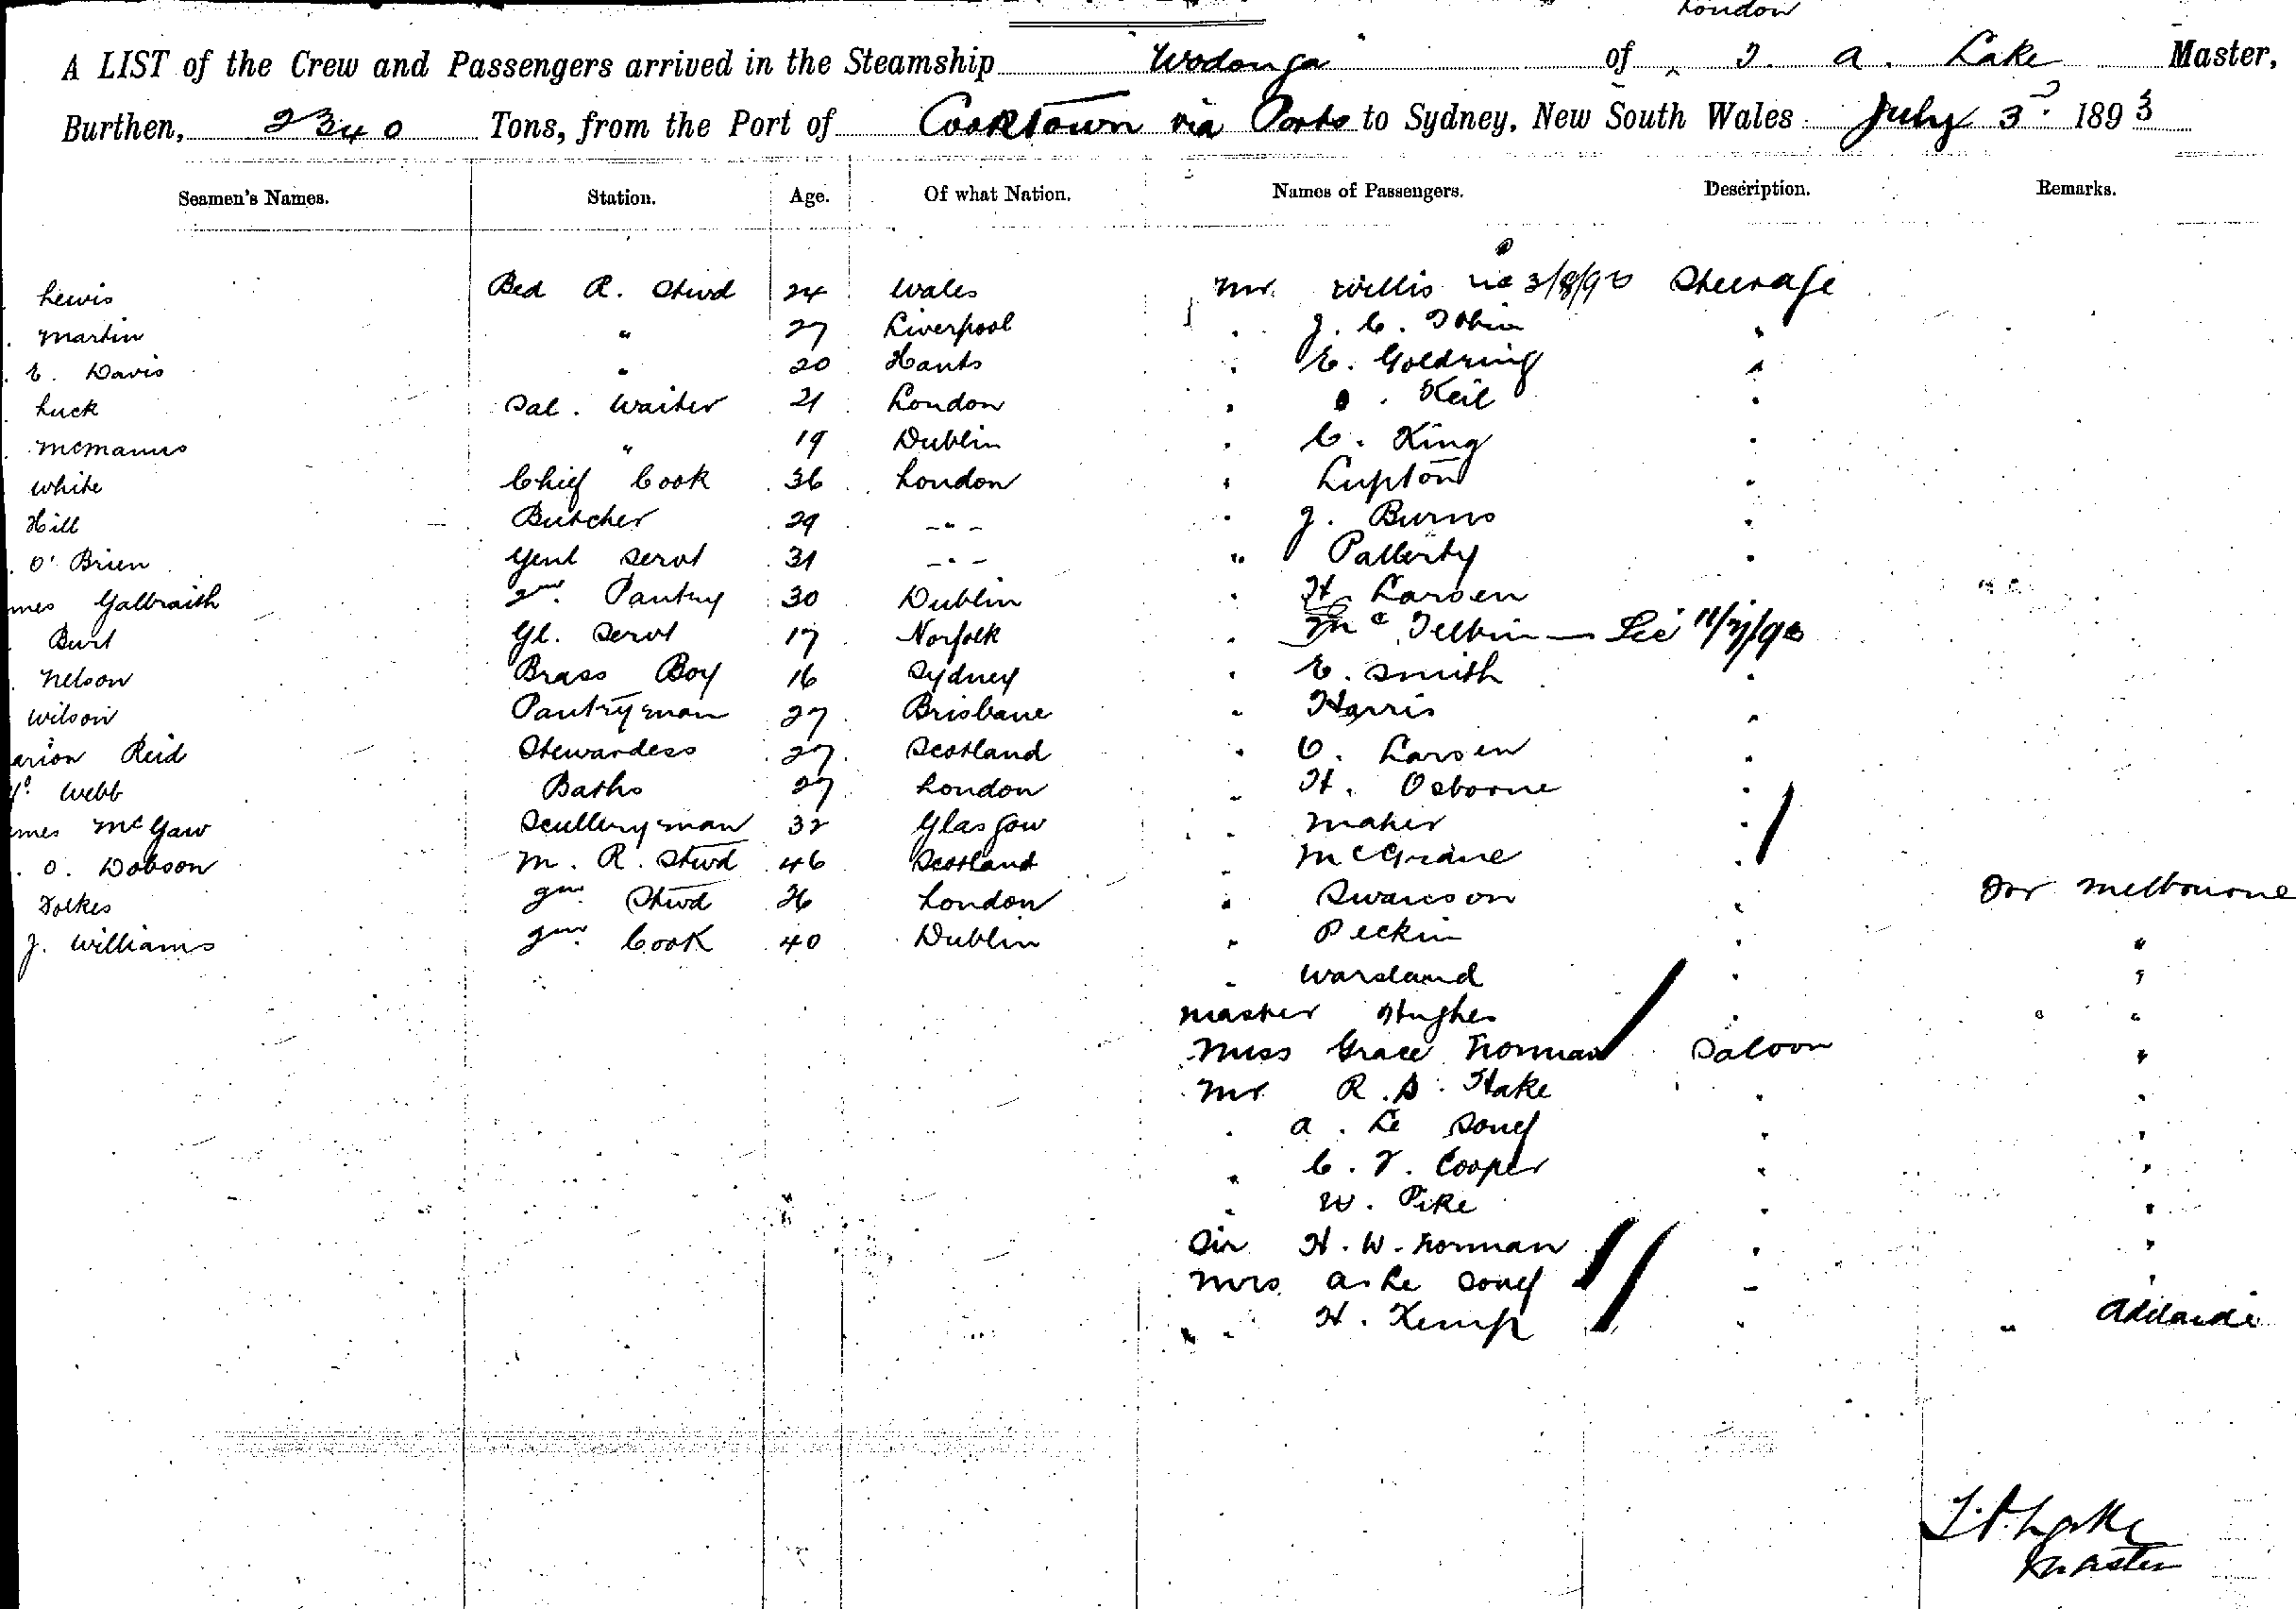 London
A LIST of the Crew and Passengers arrived in the Steamship Wodonga of T. A. Lake Master,
Burthen, 2340 Tons, from the Port of Cooktown via Ports to Sydney, New South Wales July 3rd 1893
Seamen's Names. Station. Age. Of what Nation. Names of Passengers. Description. Remarks.
Lewis Bed R. Stwd 24 Wales Mr. Willis 3/8/93 Steerage
Martin " 27 Liverpool " J. C. Tobin "
E. Davis " 20 Hants " E. Goldring "
Luck Sal. Waiter 21 London " Keil "
McManus " 19 Dublin " C. King "
White Chief Cook 36 London " Lupton "
Hill Butcher 29 -"- " J. Burns "
O'Brien Genl Servt 31 -"- " "
mes Galbraith 2nd Pantry 30 Dublin " H. Larsen
Burt Gl. Servt 17 Norfolk " Mc 11/7/93
Nelson Brass Boy 16 Sydney " E. Smith "
Wilson Pantryman 27 Brisbane " Harris "
arion Reid Stewardess 27 Scotland " C. Larsen "
Webb Baths 27 London " H. Osborne "
mes McGaw Scullery man 32 Glasgow " Maher "
O. Dobson M. R. Stwd 46 Scotland " McGrane "
Folkes 2nd Stwd 26 London " Swanson " For Melbourne
J. Williams 2nd Cook 40 Dublin " Peckin " "
" Warsland " "
Master Hughes " "
Miss Grace Norman Saloon "
Mr R. S. Hake " "
" A. Le Souef " "
" C. T. Cooper " "
" W. Pike " "
Sir H. W. Norman " "
Mrs A. Le Souef " "
" " H. Kemp " " Adelaide
T. A. Lake
Master